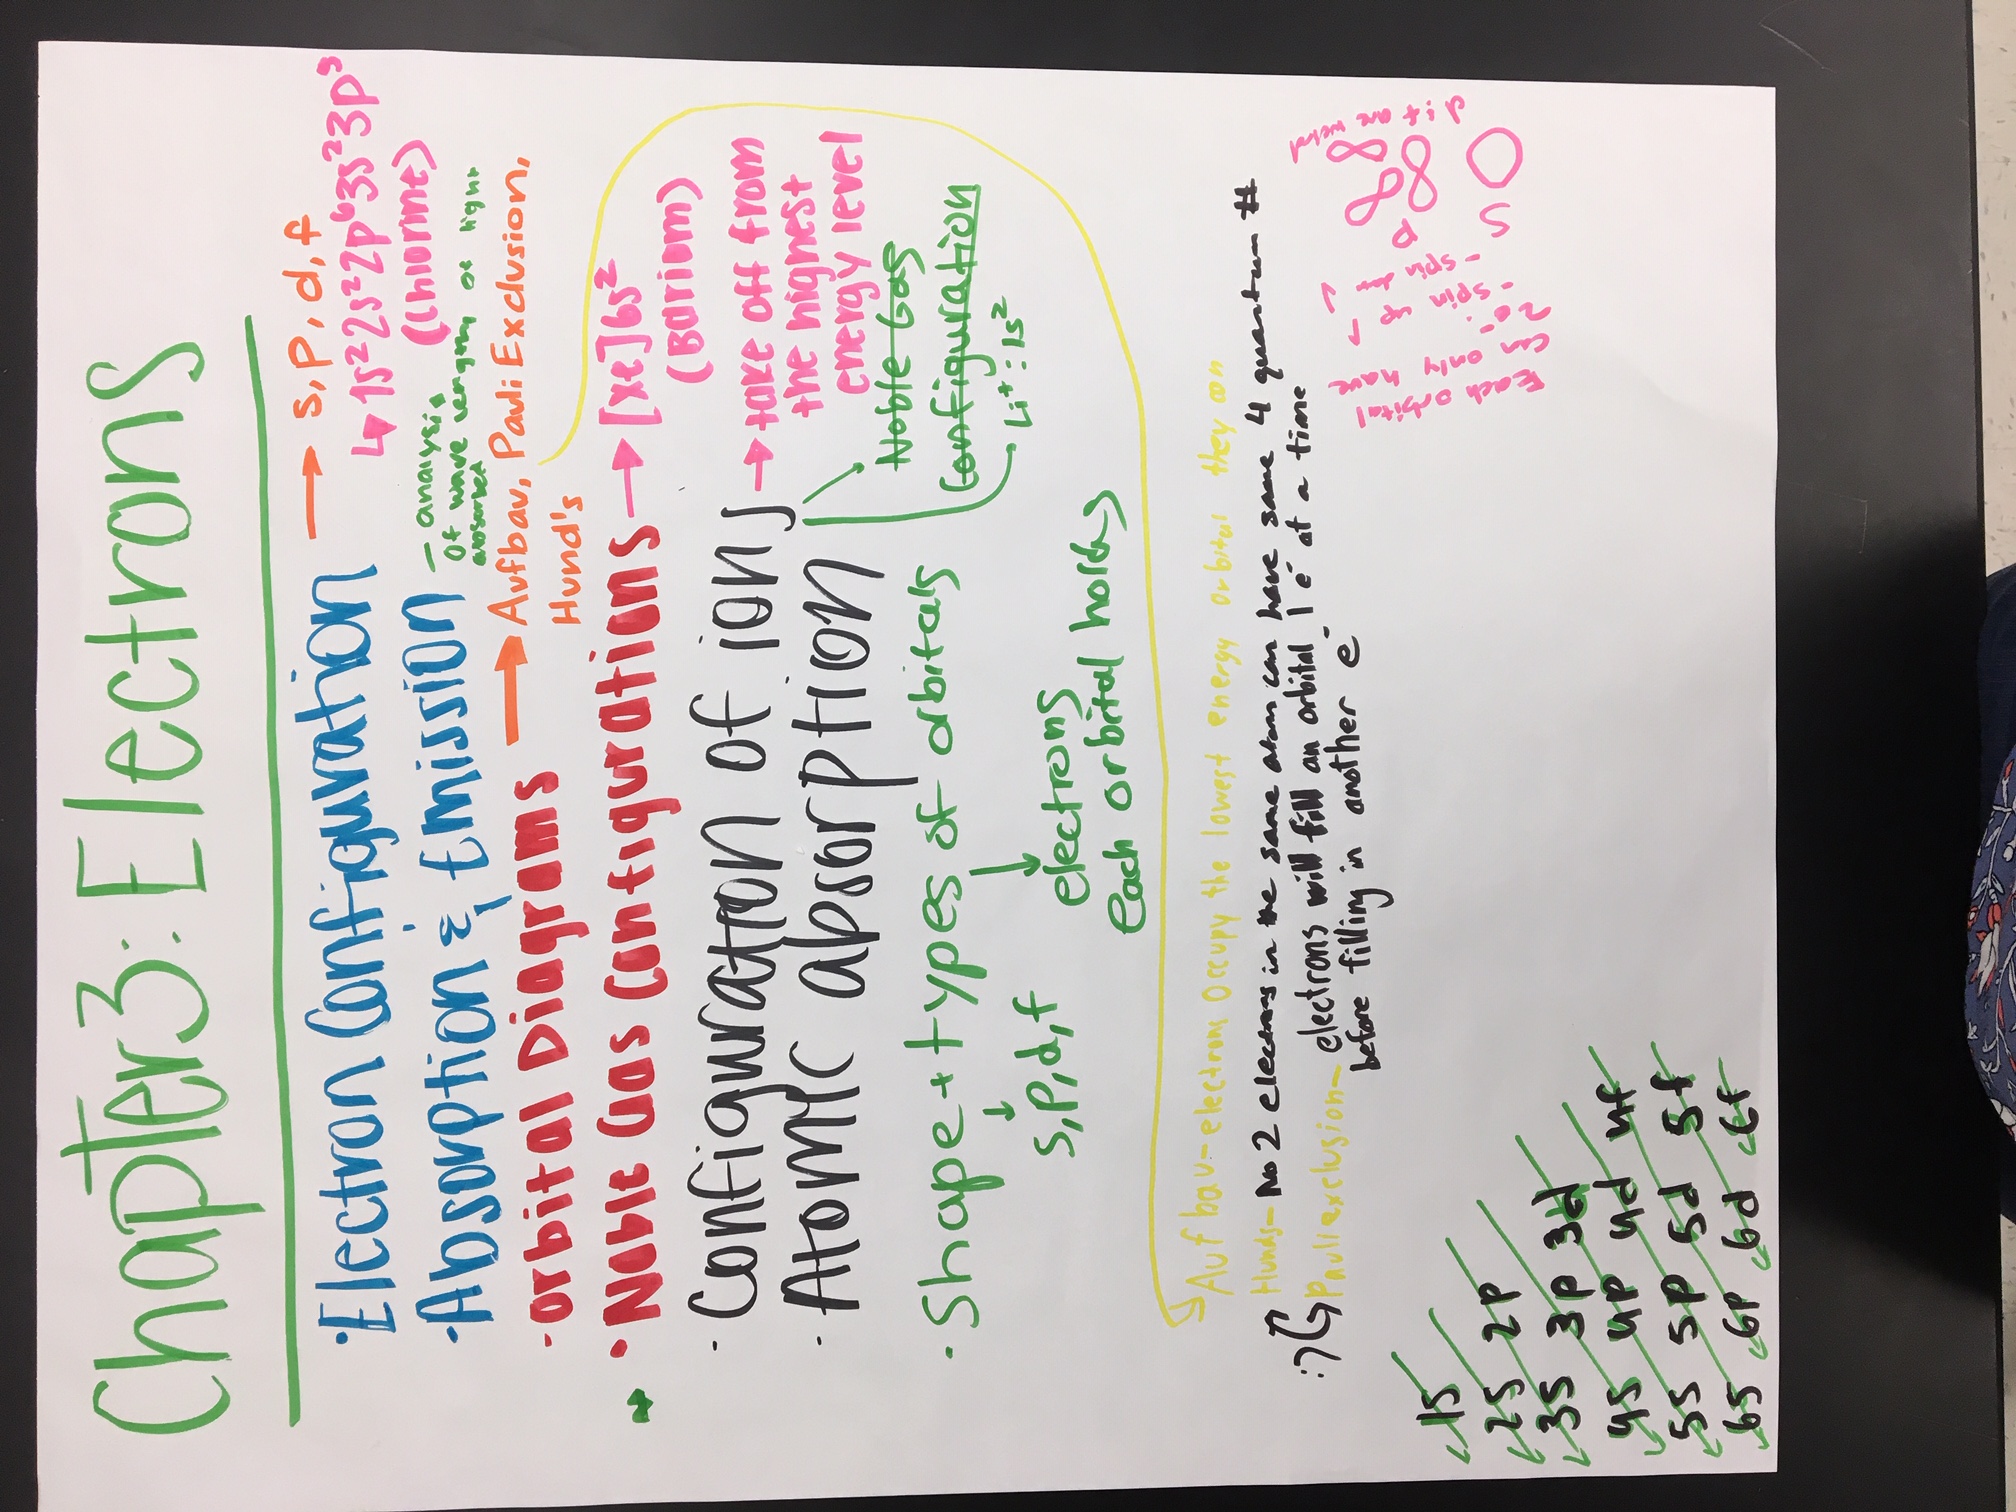 Chapter 3: Electrons
· Electron Configuration → s, p, d, f
↳ 1s²2s²2p⁶3s²3p⁵
(Chlorine)
· Absorption & Emission
– analysis
of wave length of light
absorbed
· orbital Diagrams → Aufbau, Pauli Exclusion,
Hund's
· Noble Gas Configurations → [xe]6s²
(Barium)
· Configuration of ions → take off from
the highest
energy level
· Atomic absorption
Noble Gas
Configuration
Li⁺: 1s²
· Shape + types of orbitals
s, p, d, f
electrons
each orbital holds
Aufbau – electrons occupy the lowest energy orbital they can
Hunds – No 2 electrons in the same atom can have same 4 quantum #
:) Pauli exclusion – electrons will fill an orbital 1 e⁻ at a time
before filling in another e⁻
1s
2s 2p
3s 3p 3d
4s 4p 4d 4f
5s 5p 5d 5f
6s 6p 6d 6f
Each orbital
can only have
2 e⁻.
- spin up
- spin down
s
p
d & f are weird